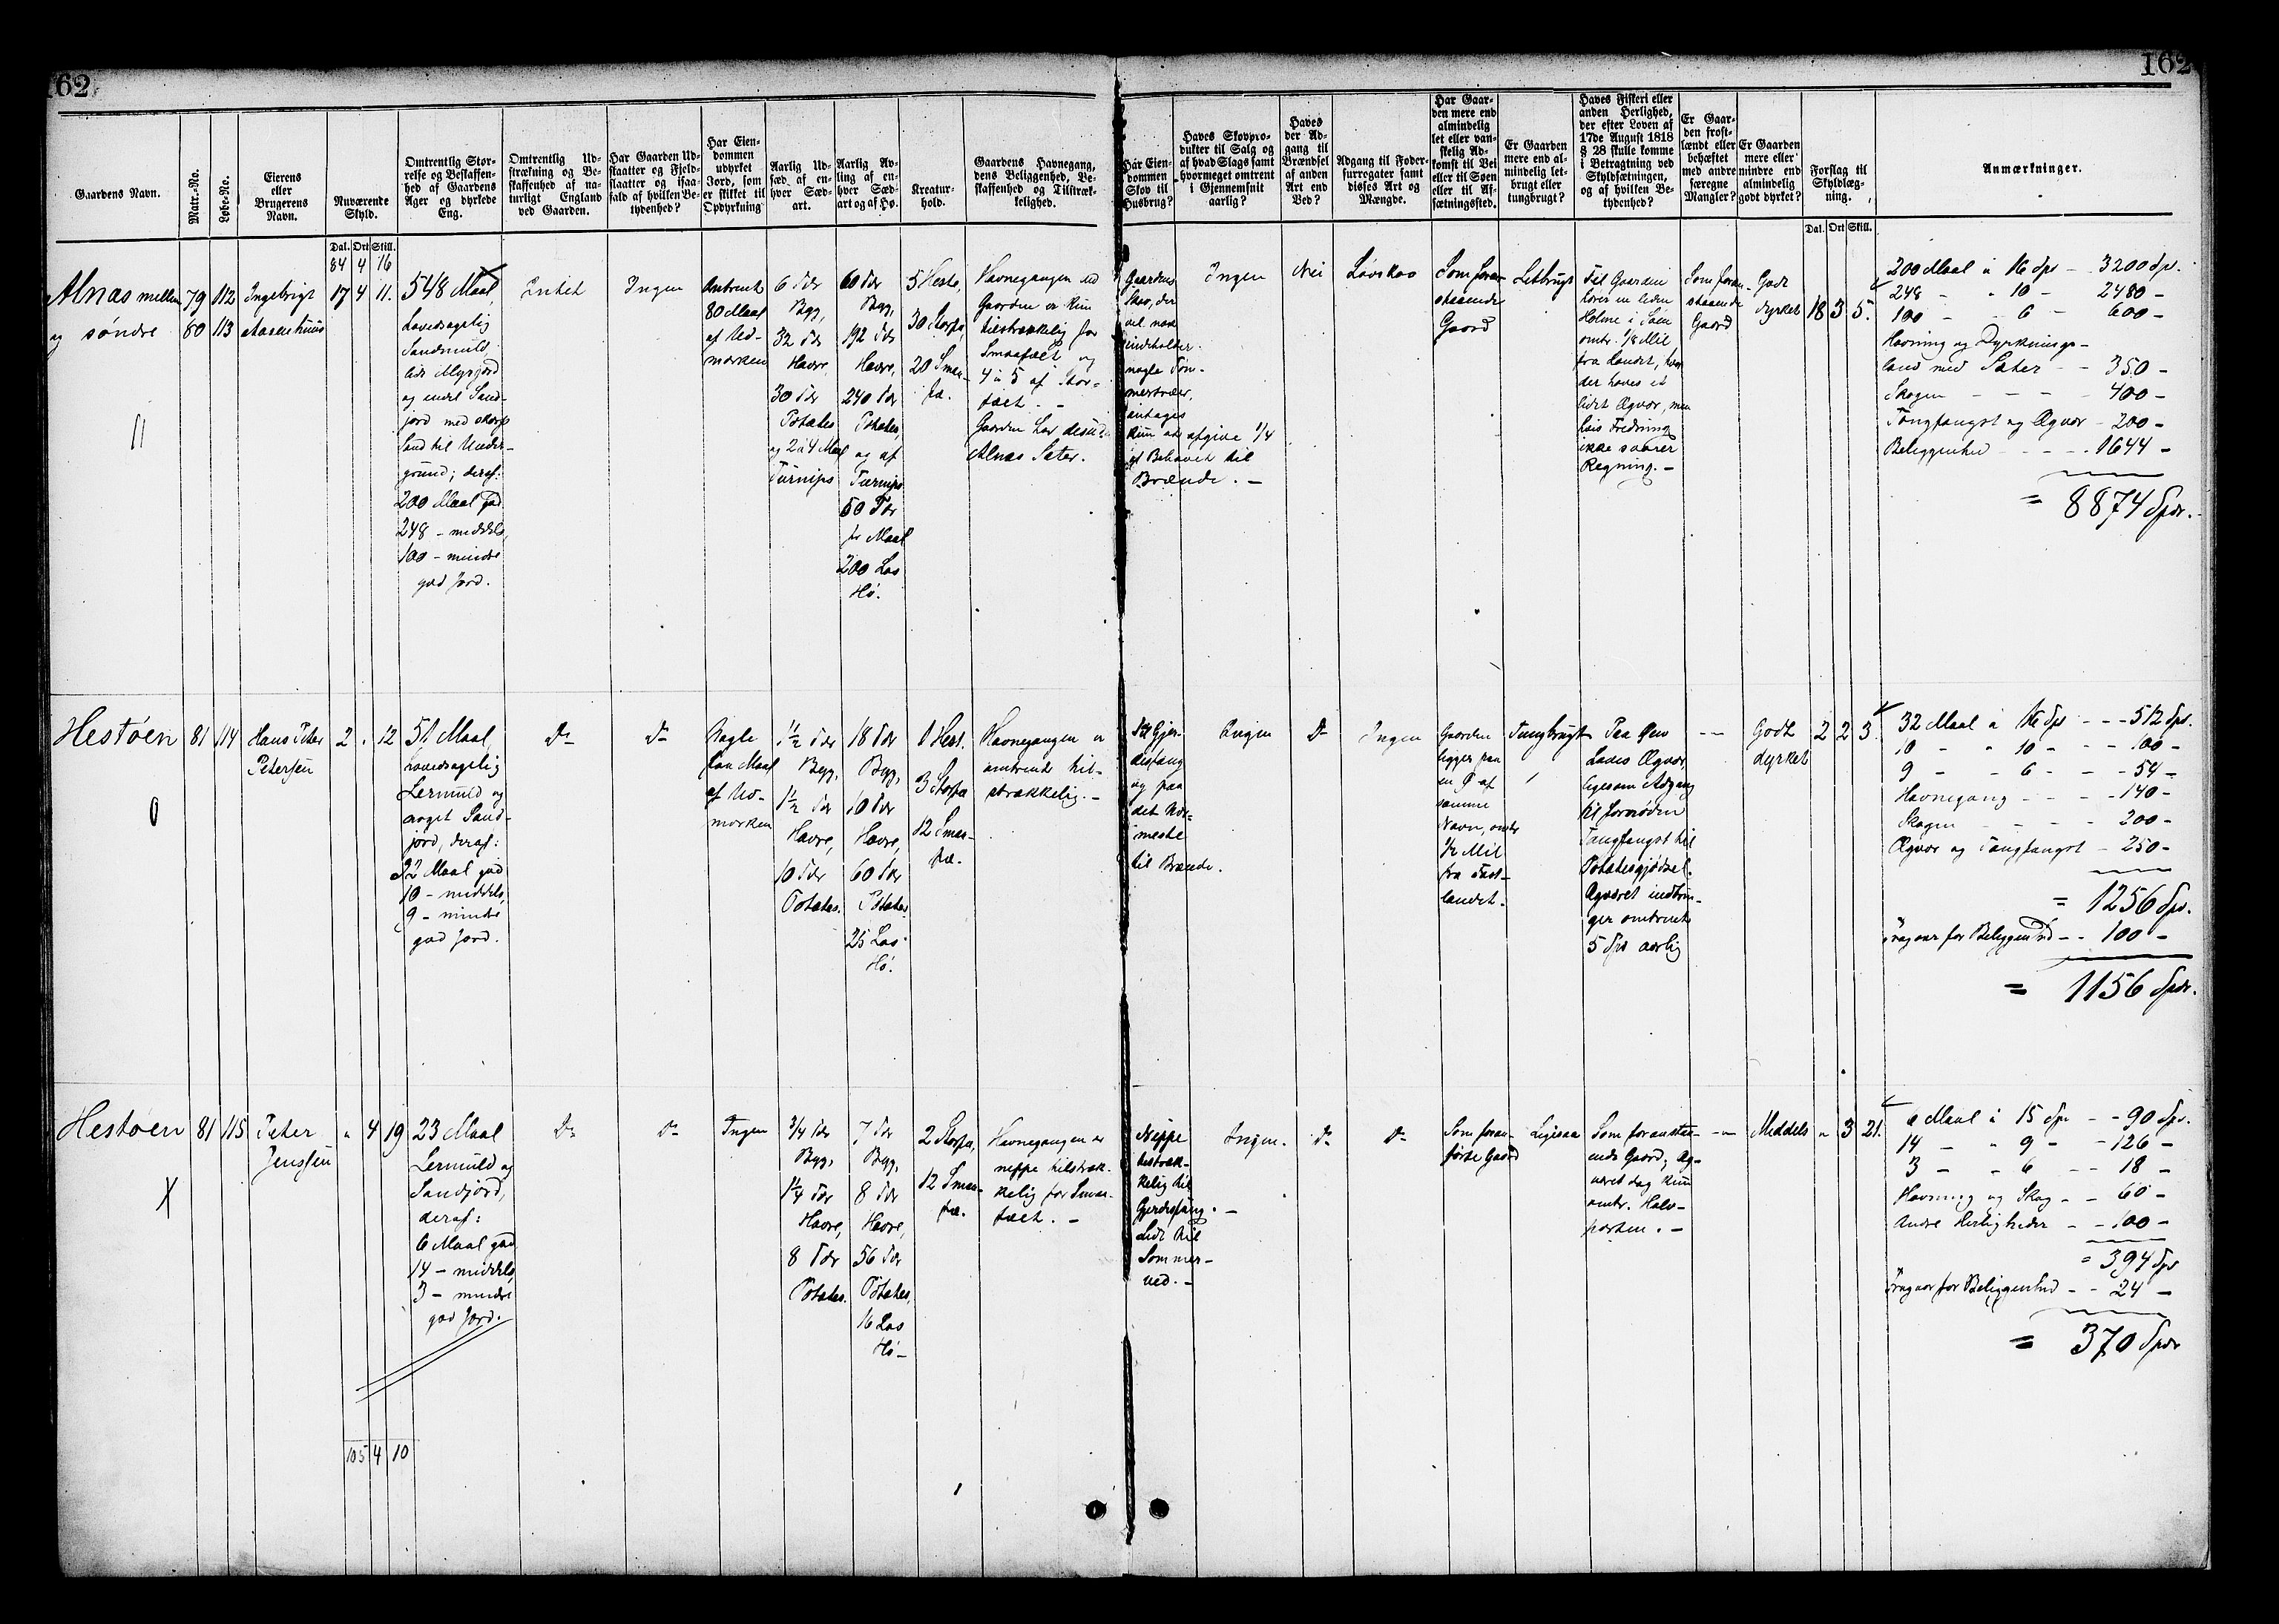 162
162
Gaardens Navn.
Matr.-No.
Løbe-No.
Eierens
eller
Brugerens
Navn.
Nuværende
Skyld.
Omtrentlig Stør-
relse og Beskaffen-
hed af Gaardens
Ager og dyrkede
Eng.
Omtrentlig Ud-
strækning og Be-
skaffenhed af na-
turligt England
ved Gaarden.
Har Gaarden Ud-
slaatter og Fjeld-
slaatter og isaa-
fald af hvilken Be-
tydenhed?
Har Eien-
dommen
udyrket
Jord, som
er skikket til
Opdyrkning
Aarlig Ud-
sæd af en-
hver Sæd-
art.
Aarlig Av-
ling af en-
hver Sæd-
art og af Hø.
Kreatur-
hold.
Gaardens Havnegang,
dens Beliggenhed, Be-
skaffenhed og Tilstræk-
kelighed.
Har Eien-
dommen
Skov til
Husbrug?
Haves Skovpro-
dukter til Salg og
af hvad Slags samt
hvormeget omtrent
i Gjennemsnit
aarlig?
Haves
der Ad-
gang til
Brændsel
af anden
Art end
Ved?
Adgang til Foder-
surrogater samt
disses Art og
Mængde.
Har Gaar-
den mere end
almindelig
let eller van-
skelig Ad-
komst til Vei
eller til Søen
eller til Af-
sætningssted.
Er Gaarden
mere end al-
mindelig let-
brugt eller
tungbrugt?
Haves Fiskeri eller
anden Herlighed,
der efter Loven af
17de August 1818
§ 28 skulle komme
i Betragtning ved
Skyldsætningen,
og af hvilken Be-
tydenhed?
Er Gaar-
den frost-
lændt eller
behæftet
med andre
særegne
Mangler?
Er Gaarden
mere eller
mindre end
almindelig
godt dyrket?
Forslag til
Skyldlæg-
ning.
Anmærkninger.
Dal. Ort Skill.
84 4 16
Dal. Ort Skill.
Alnæs mellem
og søndre
79
80
112
113
Ingebrigt
17 4 11.
548 Maal,
hovedsagelig
Sandmuld,
lidt Myrjord
og endel Sand-
jord med skarp
Sand til Under-
grund; deraf:
200 Maal god
248 - middels,
100 - mindre
god Jord.
Intet
Ingen
Omtrent
80 Maal
af Ud-
marken
6 Tdr
Byg,
32 Tdr
Havre
30 Tdr
Potetes
og 2 à 4 Maal
Turnips
60 Tdr
Byg,
192 Tdr
Havre,
240 Tdr
Potetes,
og af
Turnips
50 Tdr
pr Maal
200 Læs
Hø.
5 Heste,
30 Storfæ,
20 Smaa-
fæ.
Havnegangen ved
Gaarden er kun
tilstrækkelig for
Smaafæet og
4 à 5 af Stor-
fæet. -
Gaarden har desuden
Alnæs Sæter.
Gaardens
Skov, der
vel nok
indeholder
nogle Tøm-
mertræer,
antages
kun at afgive 1/4
af Behovet til
Brænde. -
Ingen
Nei
Løvskav
Som foran-
staaende
Gaard
Letbrugt
Til Gaarden
hører en liden
Holme i Søen
omtr. 1/8 Mil
fra Landet, hvor
der haves et
lidet Ægvær, men
hvis Fredning
ikke svarer
Regning. -
Som foran-
staaende
Gaard
Godt
dyrket
18 3 5.
200 Maal à 16 Spd - 3200 Spd.
248 - " 10 - 2480 -
100 - 6 - 600 -
Havning og Dyrknings-
land med Sæter - - 350 -
Skogen - - - 400 -
Tangfangst og Ægvær - 200 -
Beliggenhed - - - 1644 -
= 8874 Spdr.
Hestøen
81
114
Hans Peter
Petersen
2 " 12
51 Maal,
hovedsagelig
Lermuld og
Sand-
jord, deraf:
32 Maal god
10 - middels,
9 - mindre
god Jord.
Do
Do
Nogle
faa Maal
af Ud-
marken
1 1/2 Tdr
Byg,
1 1/2 Tdr
Havre,
10 Tdr
Potetes.
18 Tdr
Byg,
10 Tdr
Havre,
60 Tdr
Potetes
25 Læs
Hø.
1 Hest.
3 Storfæ
12 Smaa-
fæ.
Havnegangen er
omtrent til-
strækkelig. -
Til Gjer-
desfang
og paa
det Nær-
meste
til Brænde.
Ingen
Do
Ingen
Gaarden
ligger paa
en Ø af
samme
Navn, omtr
1/2 Mil
fra Fast-
landet.
Tungbrugt
Paa Øen
haves Ægvær
ligesom Adgang
til fornøden
Tangfangst til
Potetesgjødsel.
Ægværet indbrin-
ger omtrent
5 Spd aarlig
--
Godt
dyrket
2 2 3.
32 Maal à 16 Spd - - - 512 Spd.
10 - " 10 - - - 100 -
9 - - 6 - - - 54 -
Havnegang - - - 140 -
Skogen - - - 200 -
Ægvær og Tangfangst - 250 -
= 1256 Spd.
Fragaar for Beliggenhed - - 100 -
= 1156 Spdr.
Hestøen
81
115
Peter
Jenssen
" 4 19
23 Maal
Lermuld og
Sandjord,
deraf:
6 Maal god
14 - middels,
3 - mindre
god Jord.
Do
Do
Ingen
3/4 Tdr
Byg,
1 1/4 Tdr
Havre,
8 Tdr
Potetes.
7 Tdr
Byg,
8 Tdr
Havre,
56 Tdr
Potetes,
16 Læs
Hø -
2 Storfæ,
12 Smaa-
fæ.
Havnegangen er
neppe tilstræk-
kelig for Smaa-
fæet. -
Neppe
tilstræk-
kelig til
Gjerdesfang. -
Lidt til
Sommer-
ved. -
Ingen.
Do
Do
Som foran-
førte Gaard
Ligesaa
Som foranstaa-
ende Gaard; Æg-
været dog kun
omtr. Halv-
parten. -
--
Middels
" 3 21.
6 Maal à 15 Spd - - 90 Spd.
14 - " 9 - - 126 -
3 - " 6 - - 18 -
Havning og Skog - - 60 -
Andre Herligheder - - 100 -
= 394 Spd
Fragaar for Beliggenhed - - 24 -
= 370 Spdr
105 4 10